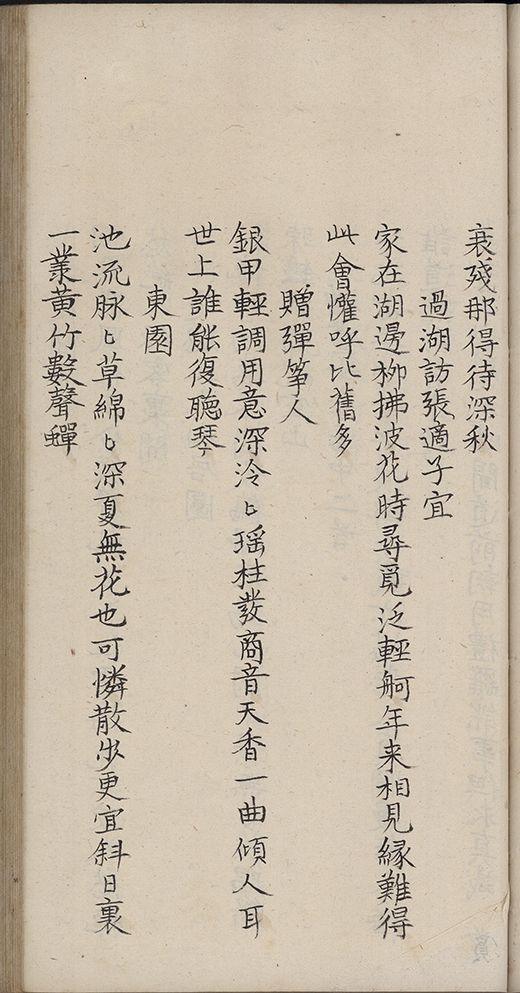 衰殘那得待深秋
過湖訪張適子宜
家在湖邊柳拂波花時尋覓泛輕舸年来相見緣難得
此會懽呼比舊多
贈彈箏人
銀甲輕調用意深泠〻瑶柱發商音天香一曲傾人耳
世上誰能復聽琴
東園
池流脉〻草綿〻深夏無花也可憐散步更宜斜日裏
一叢黃竹數聲蟬